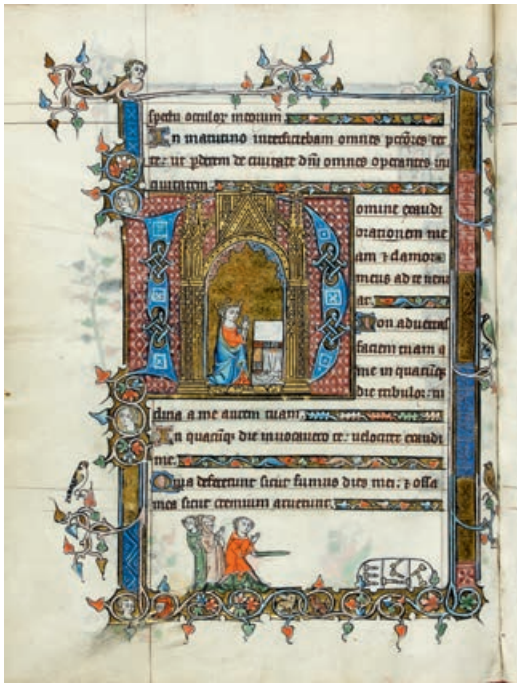 spectu oculor meorum.
In matutino interficiebam omnes pctores ter
re: ut pderem de ciuitate dni omnes operantes ini
quitatem.
Domine exaudi
orationem me
am & clamor
meus ad te veni
at.
Non aduertas
faciem tuam a
me in quacuq
die tribulor: in
clina a me aurem tuam.
In quacuq die inuocauero te: velociter exaudi
me.
Quia defecerunt sicut fumus dies mei: & ossa
mea sicut cremium aruerunt.